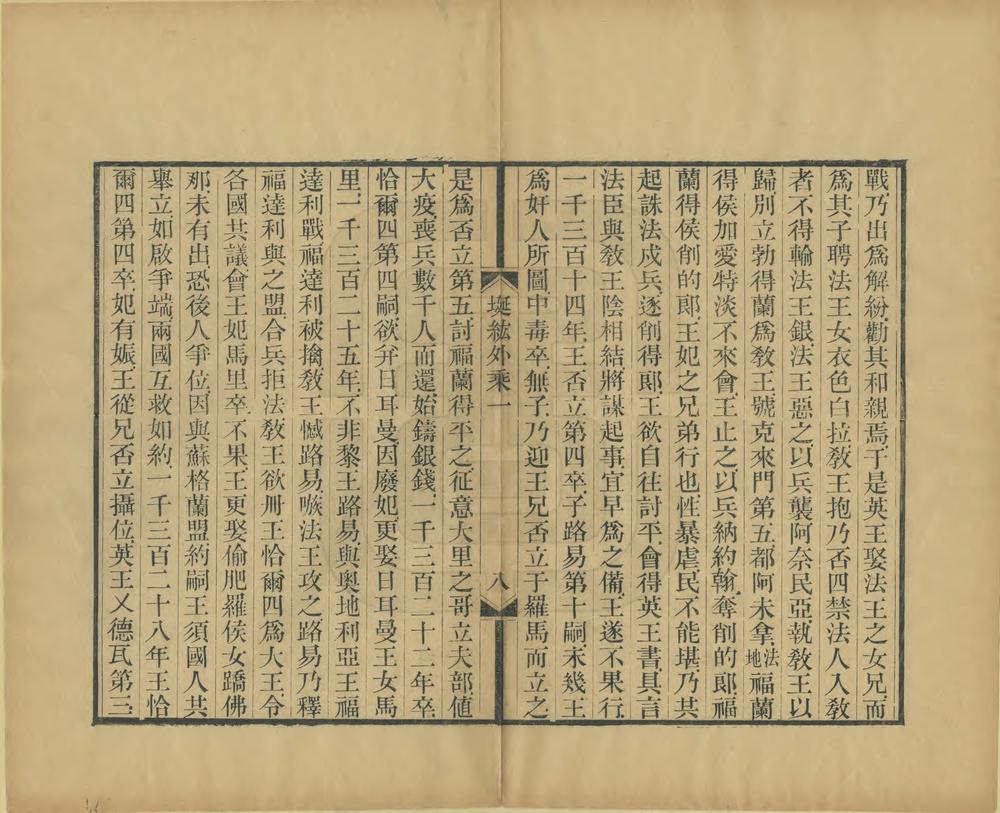 戰乃出爲解紛勸其和親焉于是英王娶法王之女兄而
爲其子聘法王女衣色白拉敎王抱乃否四禁法人入敎
者不得輸法王銀法王惡之以兵襲阿奈民亞執敎王以
歸別立勃得蘭爲敎王號克來門第五都阿未拿法地福蘭
得侯加愛特淡不來會王止之以兵納約翰奪削的郞福
蘭得侯削的郞王妃之兄弟行也性暴虐民不能堪乃共
起誅法戍兵遂削得郞王欲自往討平會得英王書具言
法臣與敎王陰相結將謀起事宜早爲之備王遂不果行
一千三百十四年王否立第四卒子路易第十嗣未幾王
爲奸人所圖中毒卒無子乃迎王兄否立于羅馬而立之
埏紘外乘一
八
是爲否立第五討福蘭得平之征意大里之哥立夫部値
大疫喪兵數千人而還始鑄銀錢一千三百二十二年卒
恰爾四第四嗣欲幷日耳曼因廢妃更娶日耳曼王女馬
里一千三百二十五年不非黎王路易與奧地利亞王福
達利戰福達利被擒敎王憾路易嗾法王攻之路易乃釋
福達利與之盟合兵拒法敎王欲册王恰爾四爲大王令
各國共議會王妃馬里卒不果王更娶偷肥羅侯女蹻佛
那未有出恐後人爭位因與蘇格蘭盟約嗣王須國人共
舉立如啟爭端兩國互救如約一千三百二十八年王恰
爾四第四卒妃有娠王從兄否立攝位英王义德瓦第三